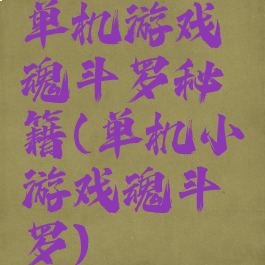 单机游戏
魂斗罗秘
籍(单机小
游戏魂斗
罗)